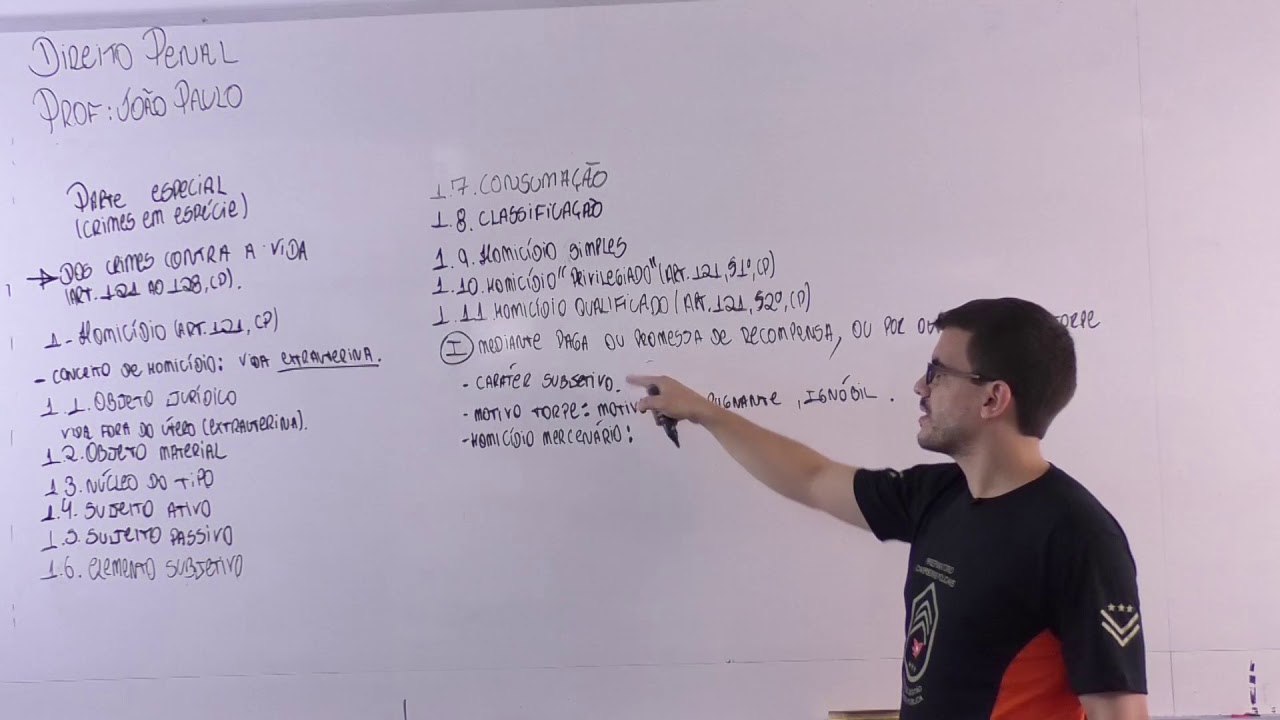 Direito Penal
Prof: João Paulo
Parte especial
(crimes em espécie)
→ Dos crimes contra a vida
(art. 121 ao 128, CP).
1 - Homicídio (art. 121, CP)
- conceito de homicídio: vida extrauterina.
1.1. Objeto jurídico
vida fora do útero (extrauterina).
1.2. Objeto material
1.3. Núcleo do tipo
1.4. Sujeito ativo
1.5. Sujeito passivo
1.6. elemento subjetivo
1.7. Consumação
1.8. Classificação
1.9. Homicídio simples
1.10. Homicídio "privilegiado" (art. 121, §1º, CP)
1.11. Homicídio qualificado (art. 121, §2º, CP)
I mediante paga ou promessa de recompensa, ou por torpe
- caráter subjetivo.
- motivo torpe: , ignóbil.
- Homicídio mercenário: